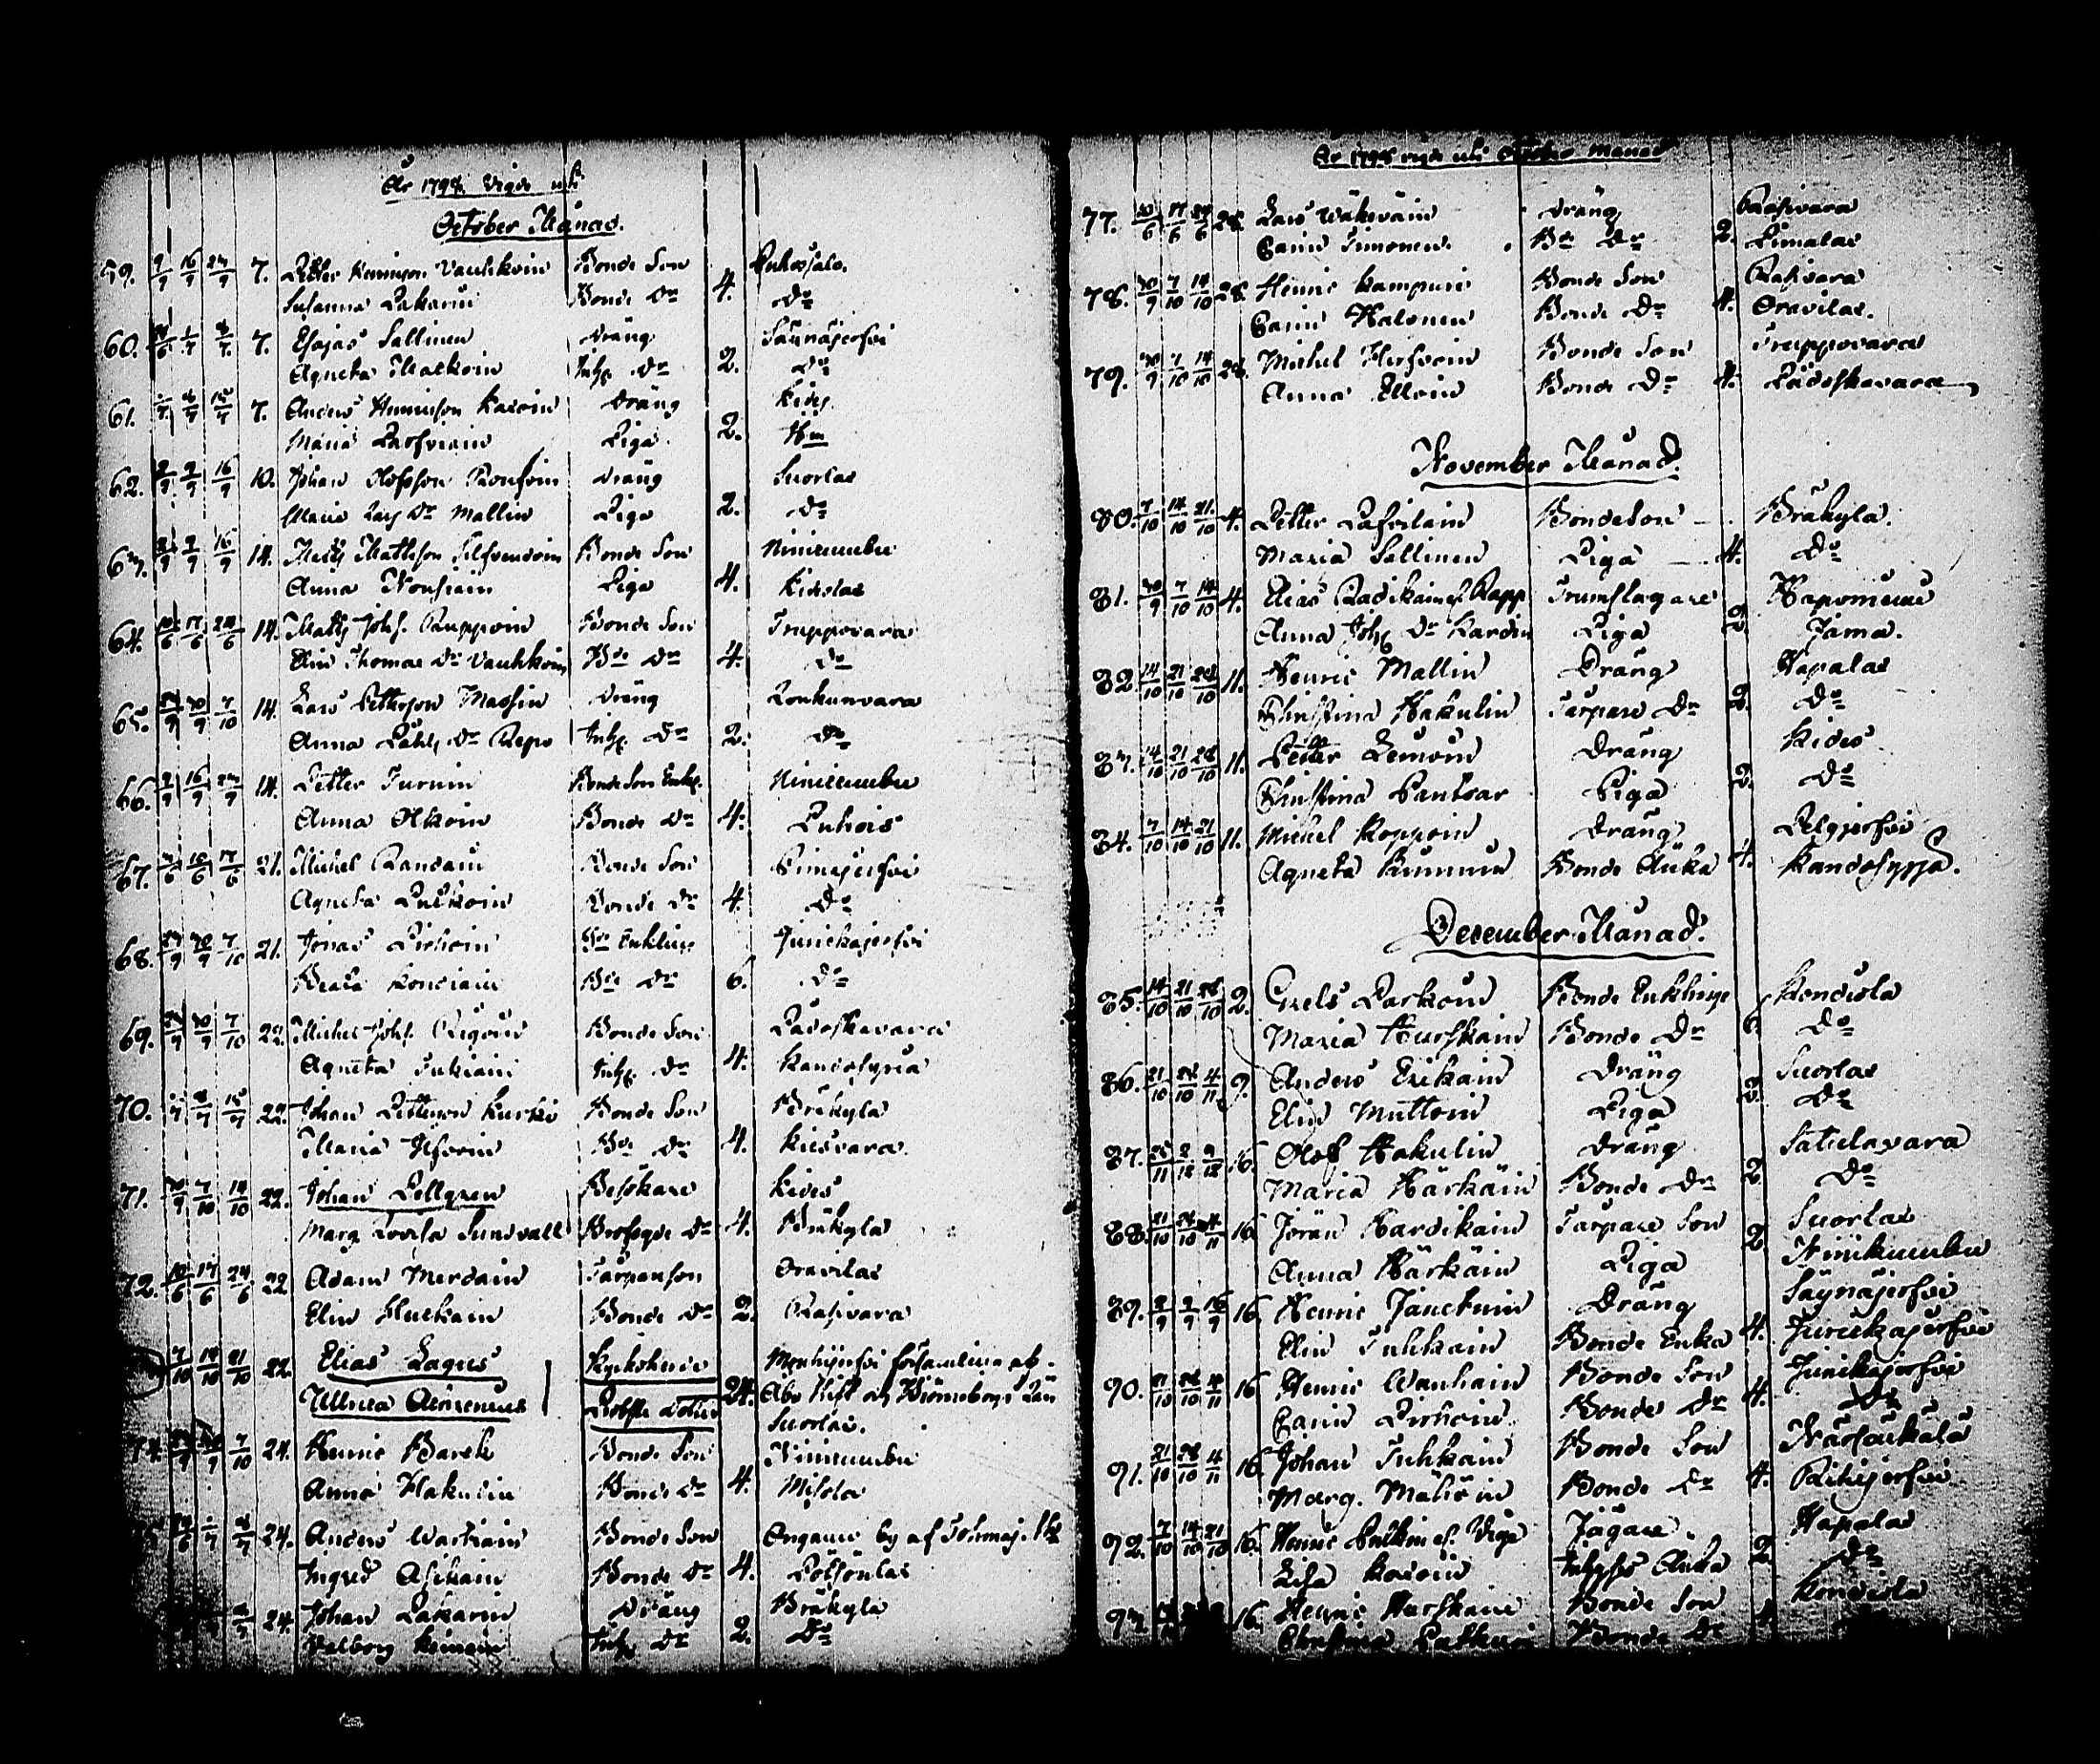 År 1798 Vigde uti
October Månad.
59. 9/9 16/9 23/9 7. Petter Henricson Vauhkoin Bonde Son Puhossalo.
Susanna Pakarin Bonde Dr 4. Do
60. 1/7 8/7 7. Esajas Sallinen Dräng Säynäjerfvi
Agneta Maskoin Inhs Dr 2. Do
61. 1/7 8/7 15/7 7. Anders Henricson Karoin Dräng Kides
Maria Parfviain Piga 2. Hm
62. 2/9 9/9 16/9 10. Johan Olofsson Ronfoin Dräng Suorlax
Maria Lars Dr Mallin Piga 2. Do
63. 2/9 9/9 16/9 14. Matts Mattsson Silfvendoin Bonde Son Niniкumbu
Anna Nousiain Piga 4. Kiexlax
64. 10/6 17/6 24/6 14. Matts Johs. Ruppoin Bonde Son Truppovara
Elin Thomas Dr Vauhkoin Bde Dr 4. Do
65. 23/9 30/9 7/10 14. Lars Pettersson Massin Dräng Loukunvara
Anna Påhls Dr Repo Inhs Dr 2. Do
66. 9/9 16/9 23/9 14. Petter Turuin Bonde Son Enkl. Ninikumbu
Anna Olkoin Bonde Dr 4. Puhois
67. 3/6 10/6 17/6 21. Michel Randain Bonde Son Rimajerfvi
Agneta Pulkoin Bonde Dr 4. Do
68. 23/9 30/9 7/10 21. Jonas Pirhoin Bde Enkling Juurikajerfvi
Beata Kondiain Bde Dr 6. Do
69. 23/9 30/9 7/10 22. Michel Johs. Rigoin Bonde Son Padoskavara
Agneta Tukiain Inhs Dr 4. Kandosyrja
70. 1/7 8/7 15/7 22. Johan Petterson Kurki Bonde Son Bräkylä
Maria Ilfvoin Bde Dr 4. Kiesvara
71. 30/9 7/10 14/10 22. Johan Pellgren Besökare Kides
Marg Lovisa Sundvall Brofogde Dr 4. Bräkylä
72. 10/6 17/6 24/6 22. Adam Merdain Tarpareson Oravilax
Elin Huckain Bonde Dr 2. Rasivara
7/10 14/10 21/10 22. Elias Lagus Kyrkoherde Mouhijerfvi församling af
Ulrica Aeimenius Probste Dotter 24. Åbo Stift och Biörneborgs Län
Suorlax.
74. 7/10 24. Henric Barck Bonde Son Ninikumbu
Anna Hakulin Bonde Dr 4. Misola
1/7 8/7 24. Anders Wartiain Bonde Son Onganus by af Tohmaj. Skn
Ingred Asikain Bonde Dr 4. Pötsönlax
8/7 24. Johan Pakarin Dräng Bräkylä
Valborg Kimain Inhs Dr 2. Do
År 1798 vigde uti October Månad
77. 10/6 17/6 24/6 28. Lars Wäkeväin Dräng Rasivara
Carin Simonen Bde Dr 2. Pimalax
78. 30/9 7/10 14/10 28. Henric Kampuri Bonde Son Rasivara
Carin Halonen Bonde Dr 4. Oravilax.
79. 30/9 7/10 14/10 28. Michel Hirfvoin Bonde Son Truppovara
Anna Elloin Bonde Dr 4. Padoskavara
November Månad.
80. 7/10 14/10 21/10 4. Petter Pafvilain BondeSon Bräkylä.
Maria Sallinen Piga 4. Do
81. 30/9 7/10 14/10 4. Elias Radikain el. Rapp Trumslagare Hapomeme
Anna Johs Dr Kardin Piga 2. Jama.
82. 14/10 21/10 28/10 11. Henric Mallin Dräng Hapalax
Christina Hakulin Tarpare Dr 2. Do
83. 14/10 21/10 28/10 11. Petter Lemoin Dräng Kides
Christina Pantsar Piga 2. Do
84. 7/10 14/10 21/10 11. Michel Koppoin Dräng Pelgjerfvi
Agneta Kinnunn Bonde Änka 4. Kandosyrjä.
December Månad.
85. 14/10 21/10 28/10 2. Grels Parkoin Bonde Enkling Kondiola
Maria Hurskain Bonde Dr 6. Do
86. 21/10 28/10 4/11 9. Anders Erikain Dräng Suorlax
Elin Muttoin Piga 2. Do
87. 25/11 2/12 9/12 16. Olof Hakulin Dräng Satulavara
Maria Härkäin Bonde Dr 2. Do
88. 21/10 28/10 4/11 16. Jöran Hardikain Tarpare Son Suorlax
Anna Härkäin Piga 2. Ninikumbu
89. 2/9 9/9 16/9 16. Henric Jänckuin Dräng Säynäjerfvi
Elin Tuhkain Bonde Enka 4. Juurikajerfvi
90. 21/10 28/10 4/11 16. Henric Wanhain Bonde Son Juurikajerfvi
Carin Pirhoin Bonde Dr 4. Do
91. 21/10 28/10 4/11 16. Johan Tuhkain Bonde Son
Marg. Mähöin Bonde Dr 4. Rihijerfvi
92. 7/10 14/10 21/10 16. Henric Pulkin el. Vige Jägare. Hapalax
Lisa Karoin Inhyses Änka 2. Do
93. 16. Henric Hurskain Bonde Son Kondiola
Christina Bonde Dr 4